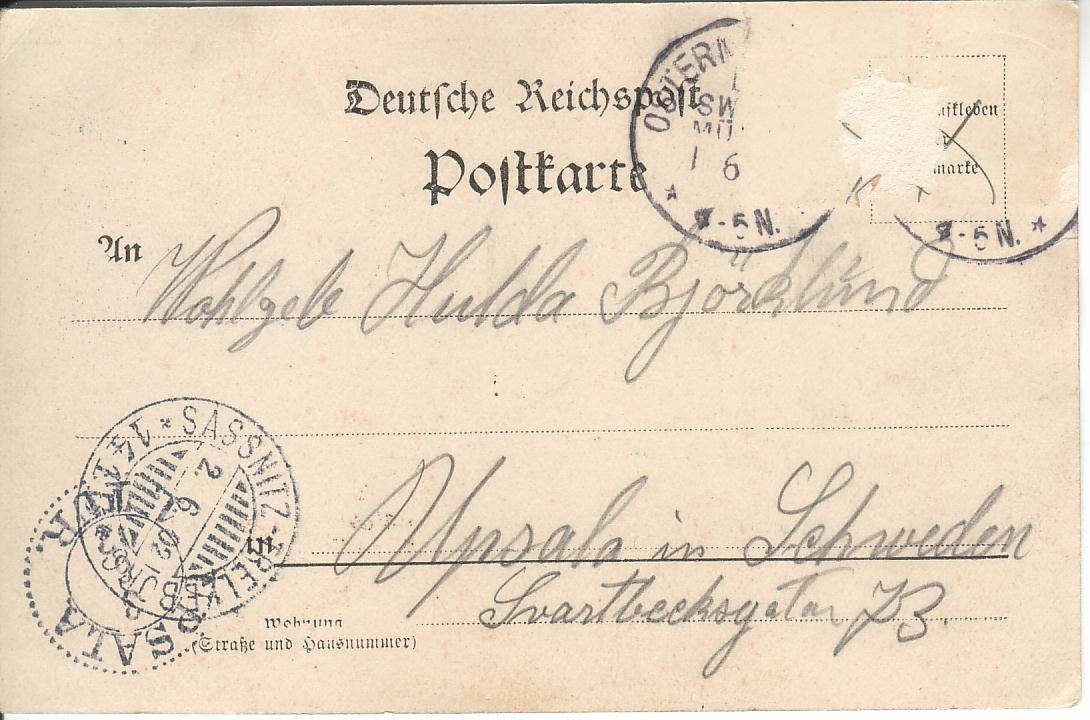 Deutsche Reichspost
Postkarte
OSTERN
SW
MÜ
1 6
-5 N.
ufkleben
marke
5-5 N.
An
Wohlgeb Hulda Björklund
SASSNITZ-TRELL
141
2 6 02
in Upsala in Schweden
Svartbecksgatan 73.
UPSALA
Wohnung
(Straße und Hausnummer)